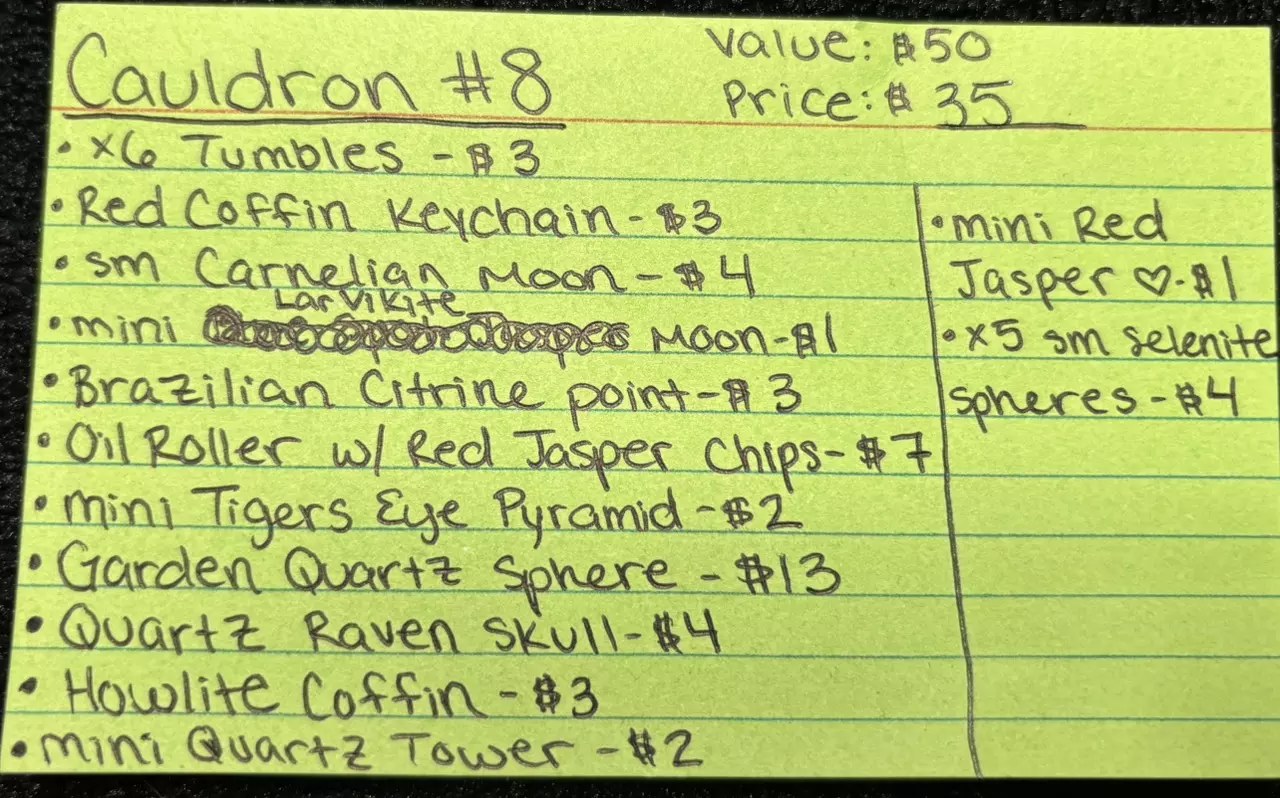 Cauldron #8
Value: $50
Price: $ 35
• x6 Tumbles - $3
• Red Coffin Keychain - $3
• sm Carnelian Moon - $4
Larvikite
• mini Moon - $1
• Brazilian Citrine point - $3
• Oil Roller w/ Red Jasper Chips - $7
• mini Tigers Eye Pyramid - $2
• Garden Quartz Sphere - $13
• Quartz Raven Skull - $4
• Howlite Coffin - $3
• mini Quartz Tower - $2
• mini Red
Jasper ♡ - $1
• x5 sm Selenite
Spheres - $4